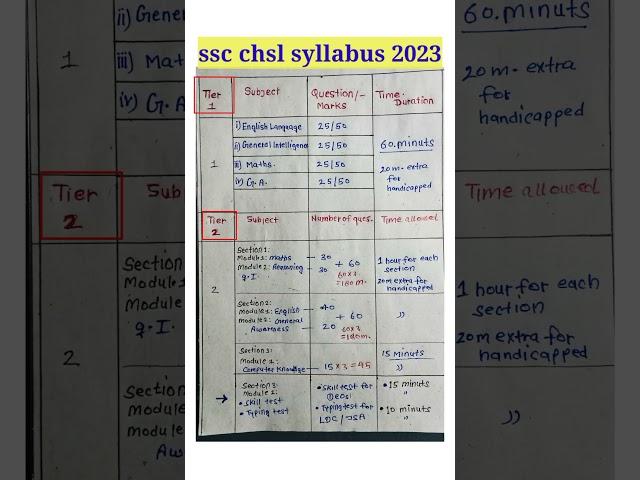 ssc chsl syllabus 2023
Tier 1 Subject Question/- Marks Time. Duration
i) English Language 25/50
ii) General Intelligenc 25/50 60.minuts
1
iii) Maths. 25/50 20 m. extra for handicapped
iv) G.A. 25/50
Tier 2 Subject Number of ques. Time allowed
Section 1:
Module 1: maths — 30 + 60 1 hour for each section
Module 2: Reasoning — 30 60x3 =180 m. 20m extra for handicapped
g.I.
2
Section 2:
Module 1: English — 40 + 60 ))
Module 2: General Awareness — 20 60x3 =180m.
Section 3: 15 minuts
Module 1:
Computer Knowledge — 15 x 3 = 45 ))
Section 3:
Module 2:
→ • Skill test • Skill test for DEOs! • 15 minuts
• Typing test • Typing test for LDC / JSA • 10 minuts
ii) General
iii) Mat
iv) G.A.
1
Tier 2 Subj
Section 1:
Module 1:
Module
g.I.
2
Section
Module
Module
Aw
60.minuts
20m. extra
for
handicapped
Time allowed
1 hour for each
section
20m extra for
handicapped
))